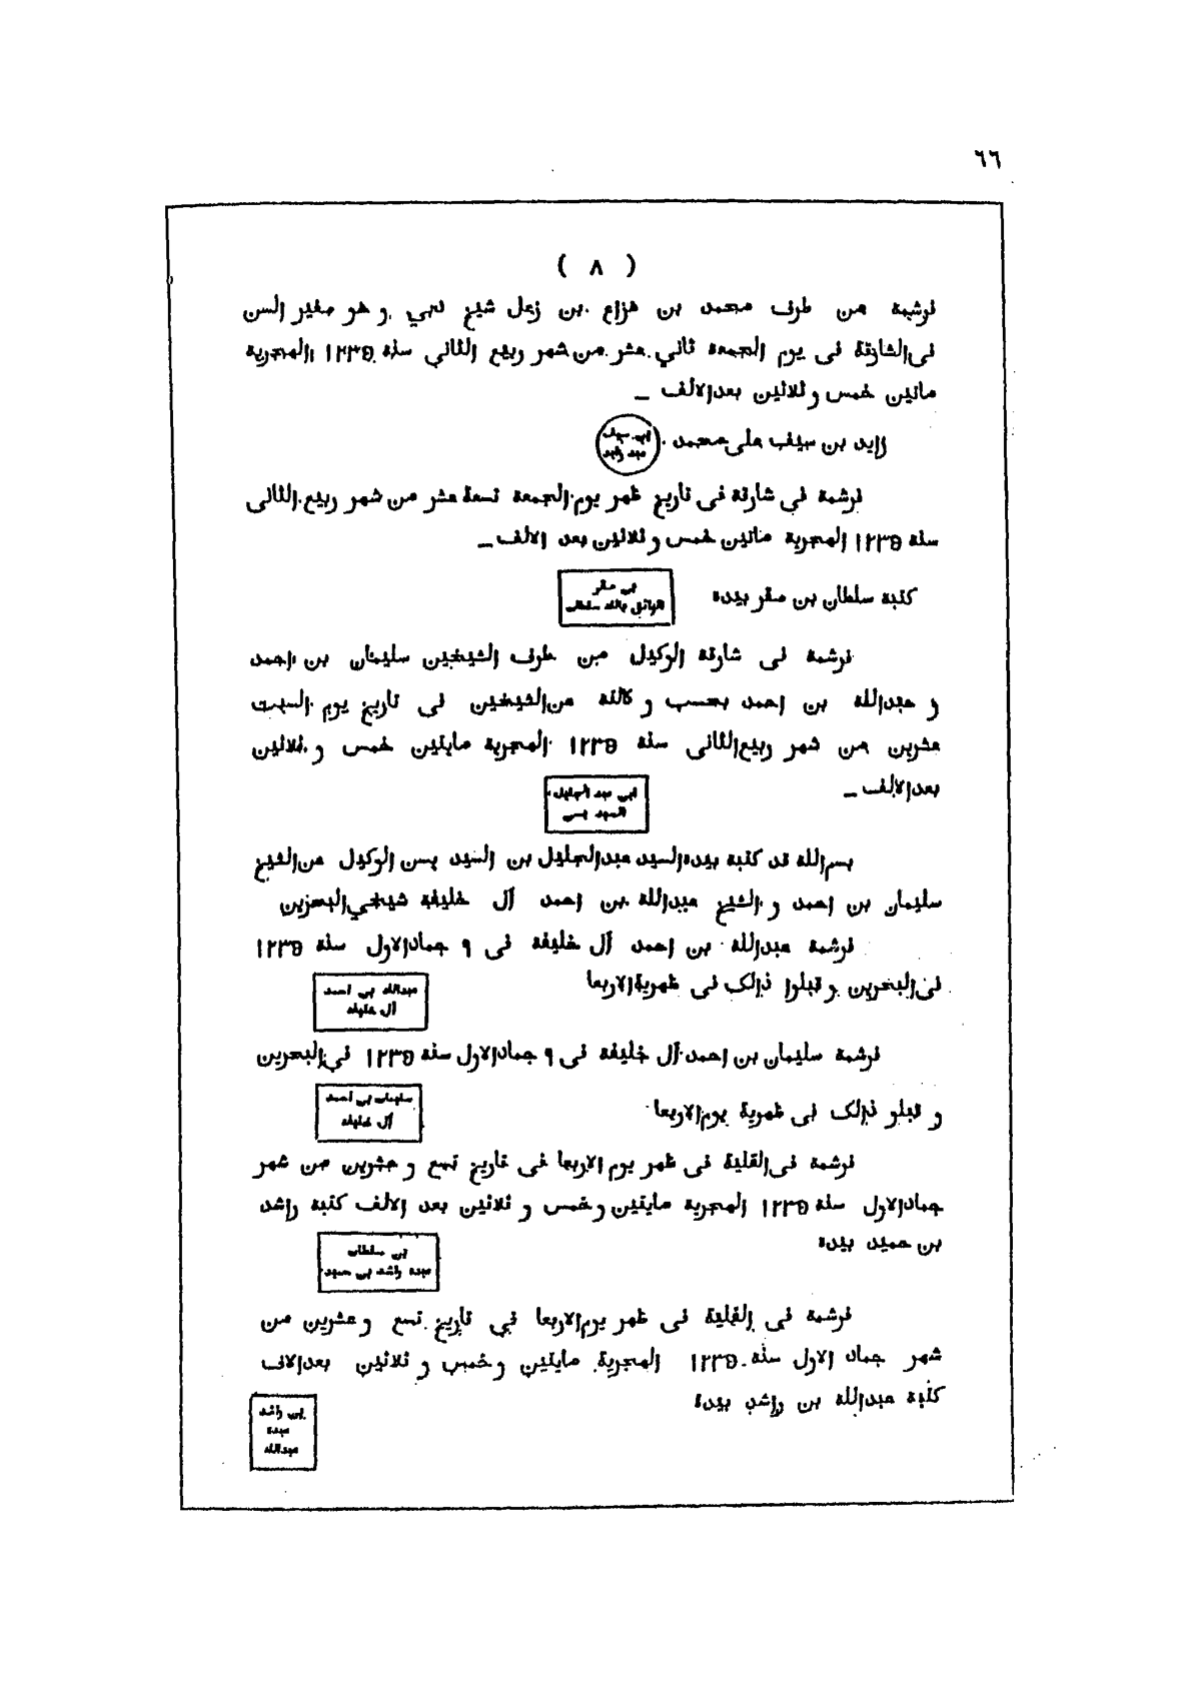 ٦٦
( ٨ )
فرشمة من طرف محمد بن هزاع بن زعل شيخ دبي و هو صغير السن
فى الشارقة فى يوم الجمعة ثاني عشر من شهر ربيع الثاني سنة ١٢٣٥ الهجرية
ماتين خمس و ثلاثين بعد الالف _
زايد بن سيف على محمد
ابن سيف
عبد زايد
فرشمة في شارقة فى تاريخ ظهر يوم الجمعة تسعة عشر من شهر ربيع الثانى
سنة ١٢٣٥ الهجرية ماتين خمس و ثلاثين بعد الالف _
كتبة سلطان بن صقر بيده
بن صقر
الواثق بالله سلطان
فرشمة فى شارقة الوكيل من طرف الشيخين سليمان بن احمد
و عبدالله بن احمد بحسب و كالته من الشيخين فى تاريخ يوم السبت
عشرين من شهر ربيع الثانى سنة ١٢٣٥ الهجرية مايتين خمس و ثلاثين
بعد الالف _
ابن عبد الجليل
السيد يسن
بسم الله قد كتبة بيده السيد عبدالجليل بن السيد يسن الوكيل من الشيخ
سليمان بن احمد و الشيخ عبدالله بن احمد آل خليفة شيخي البحرين
فرشمة عبدالله بن احمد آل خليفة فى ٩ جماد الاول سنة ١٢٣٥
فى البحرين و قبلوا ذالك فى ظهرية الاربعا
عبدالله بن احمد
آل خليفة
فرشمة سليمان بن احمد آل خليفة فى ٩ جماد الاول سنة ١٢٣٥ في البحرين
و قبلو ذالك فى ظهرية يوم الاربعا
سليمان بن احمد
آل خليفة
فرشمة فى القلية فى ظهر يوم الاربعا فى تاريخ تسع و عشرين من شهر
جماد الاول سنة ١٢٣٥ الهجرية مايتين و خمس و ثلاثين بعد الالف كتبة راشد
بن حميد بيده
بن سلطان
عبده راشد بن حميد
فرشمة فى القلية فى ظهر يوم الاربعا في تاريخ تسع و عشرين من
شهر جماد الاول سنة ١٢٣٥ الهجرية مايتين و خمس و ثلاثين بعد الاف
كتبة عبدالله بن راشد بيدة
ابن راشد
عبده
عبدالله